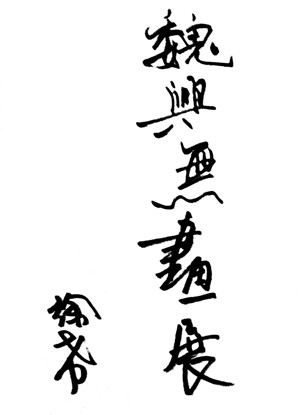 魏興無畫展
徐希